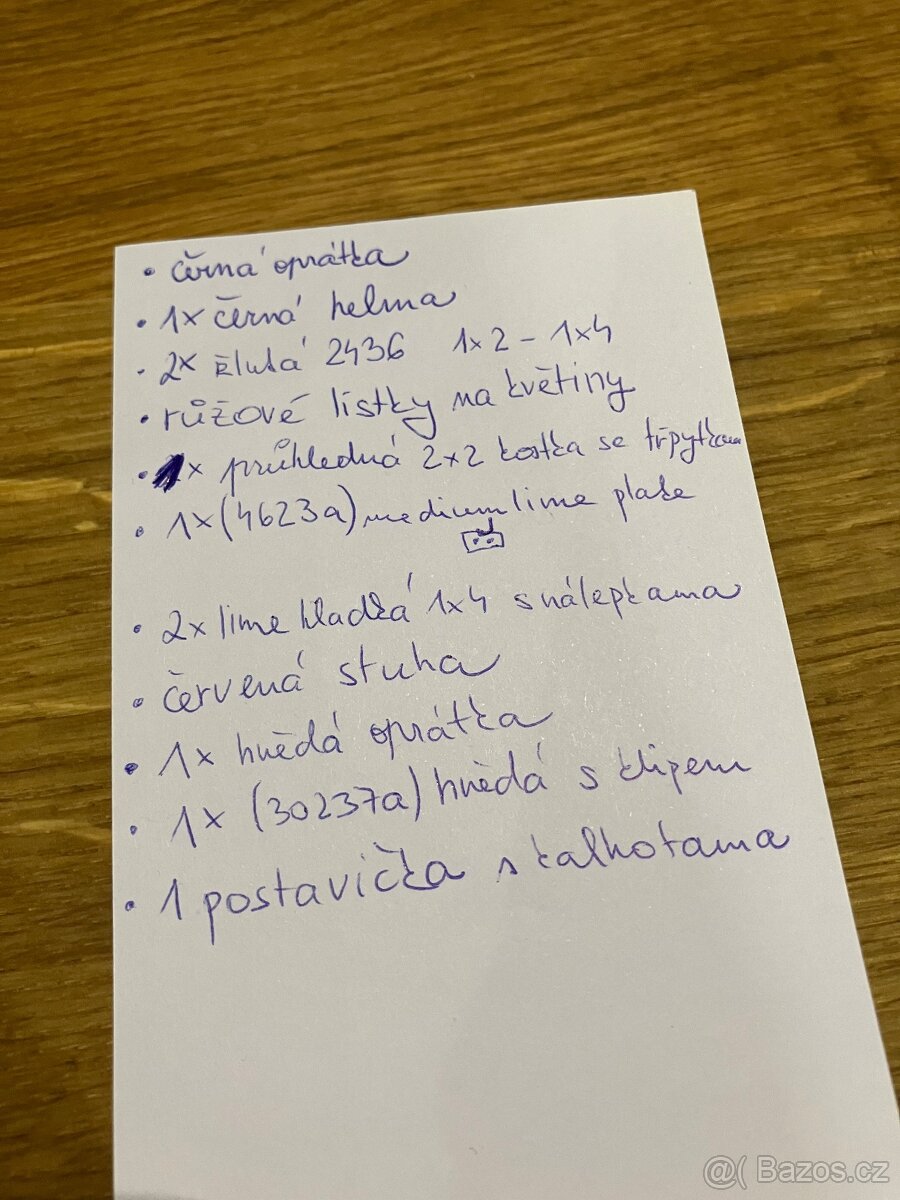 • černá oprátka
• 1x černá helma
• 2x žlutá 2436 1x2 - 1x4
• růžové lístky na květiny
• 1x průhledná 2x2 kostka se třpytkama
• 1x (4623a) medium lime plate
• 2x lime hladká 1x4 s nálepkama
• červená stuha
• 1x hnědá oprátka
• 1x (30237a) hnědá s klipem
• 1 postavička s kalhotama
@( Bazos.cz